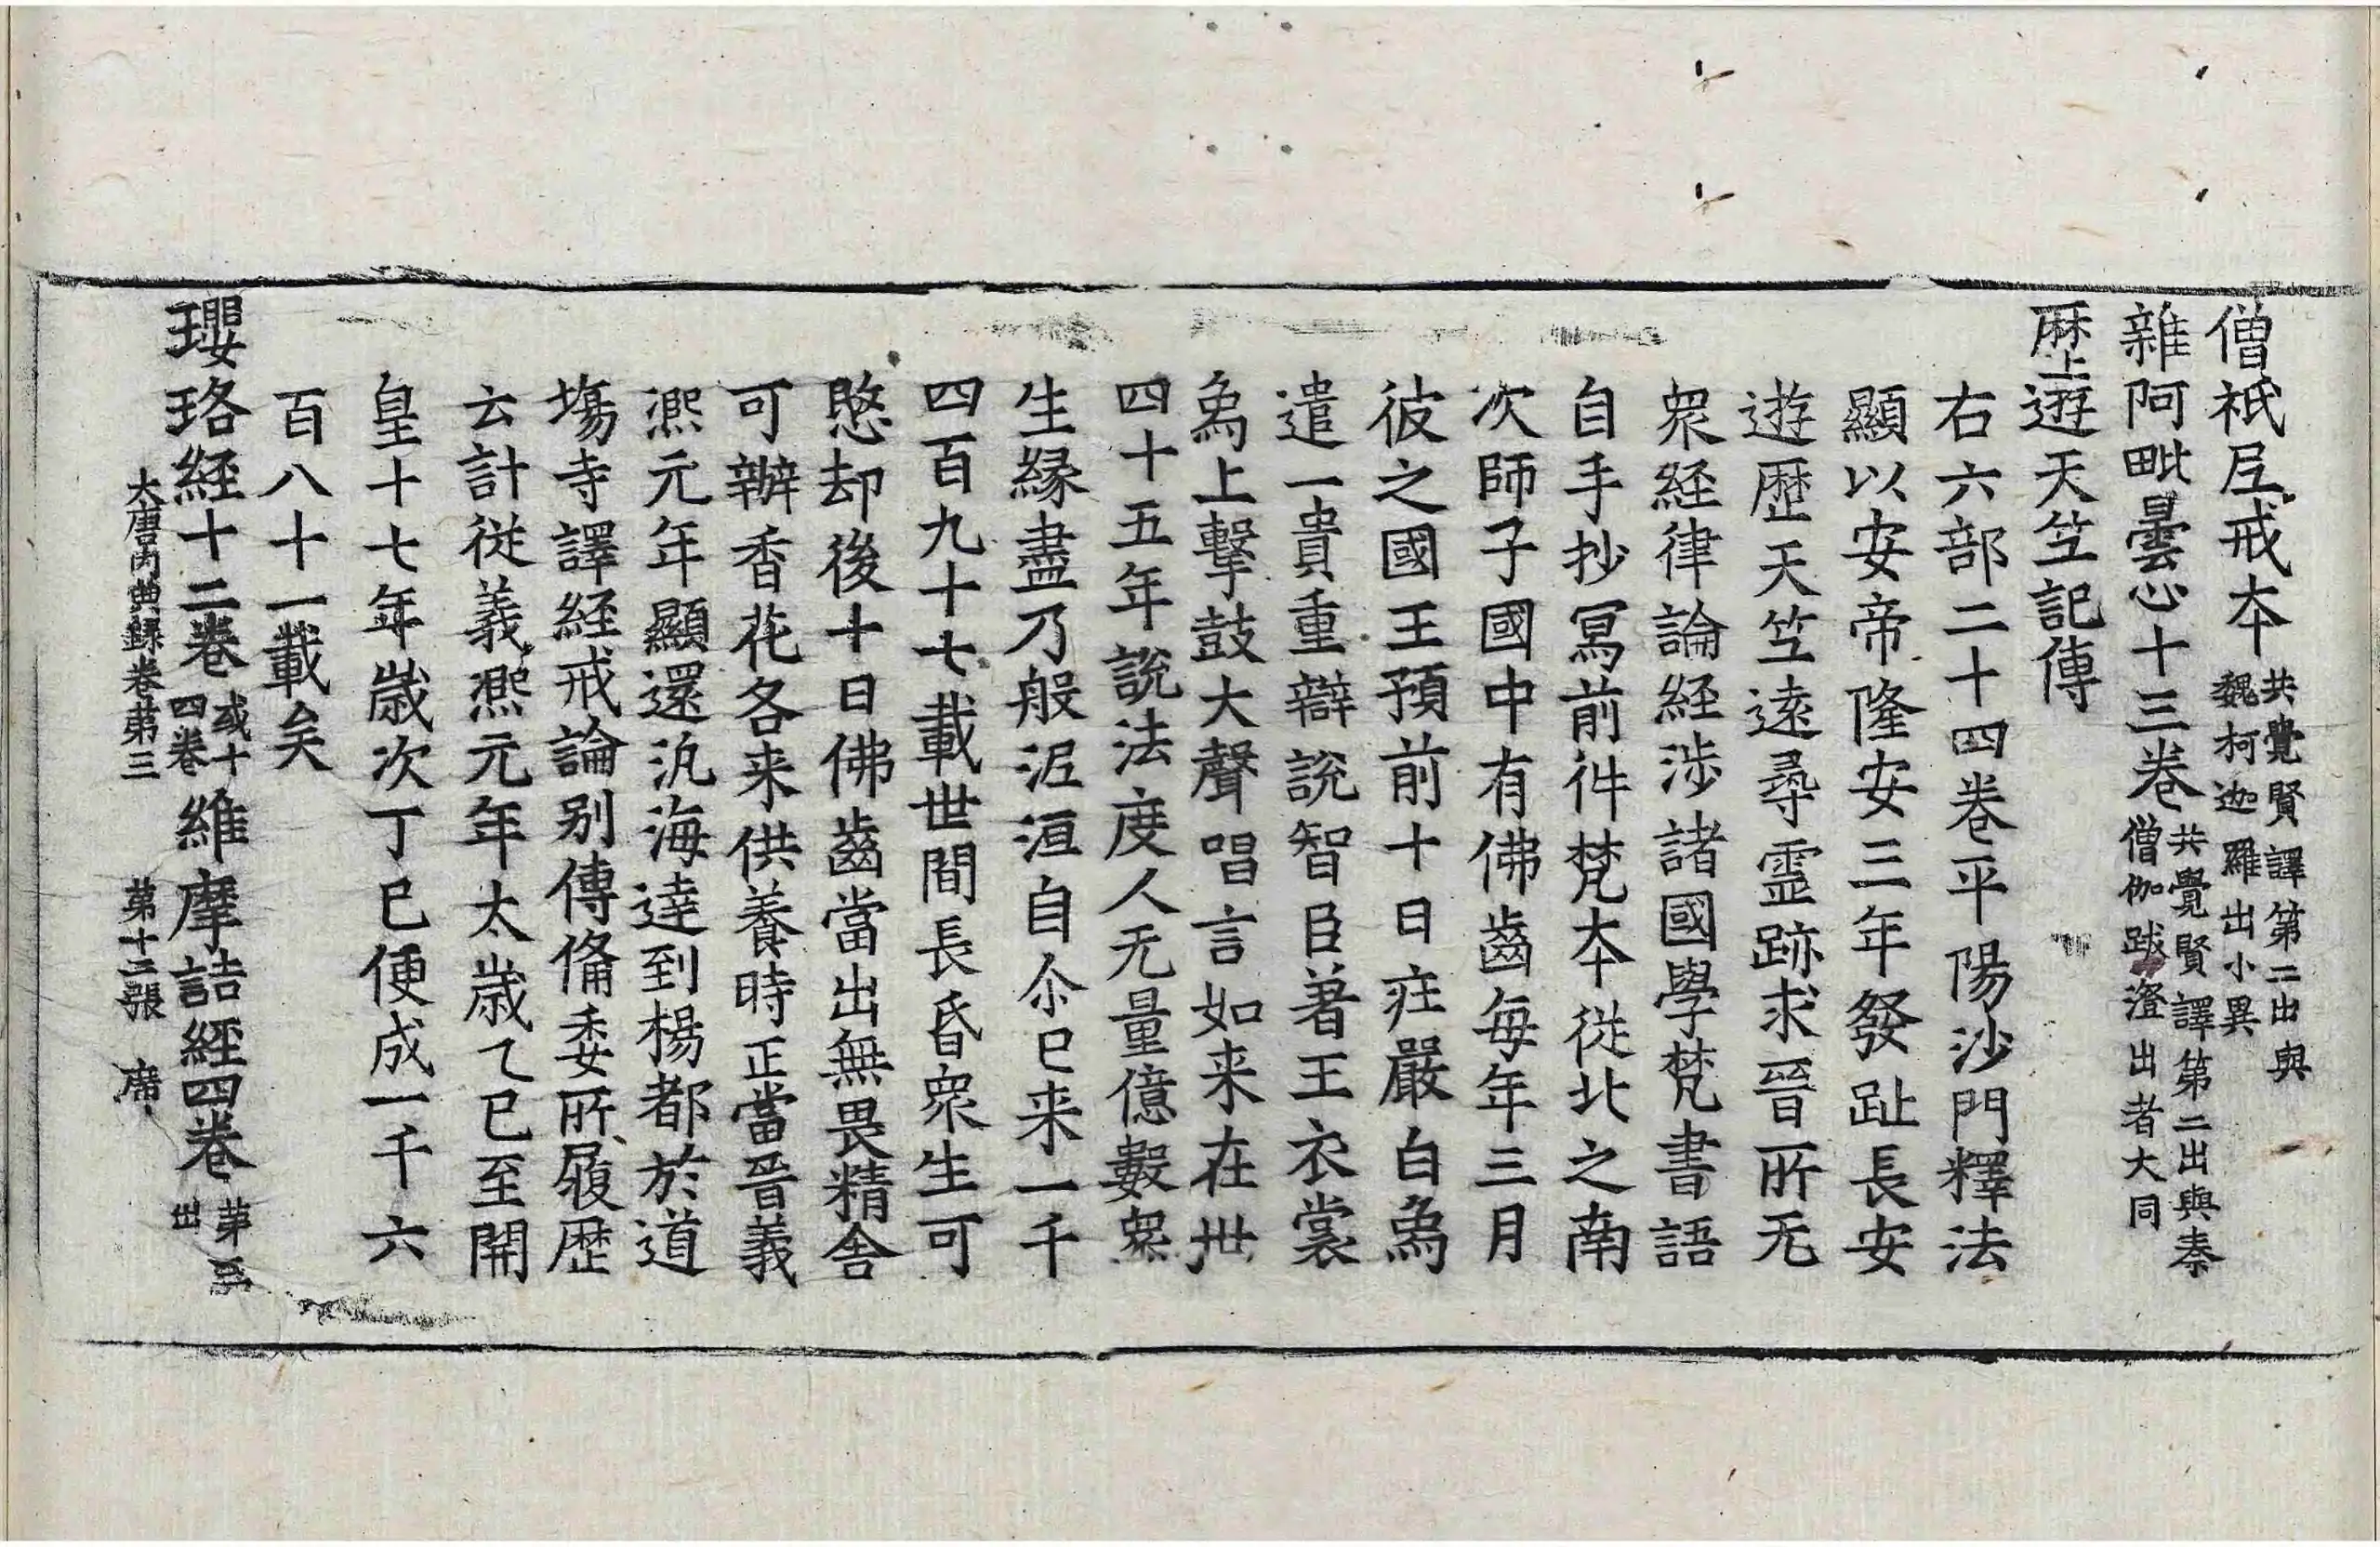 僧祇尼戒本 共覺賢譯第二出與魏柯迦羅出小異
雜阿毗曇心十三卷 共覺賢譯第二出與秦僧伽跋澄出者大同
歷遊天竺記傳
右六部二十四卷平陽沙門釋法
顯以安帝隆安三年發趾長安
遊歷天竺遠尋霊跡求晉所无
衆経律論経涉諸國學梵書語
自手抄冩前件梵夲従北之南
次師子國中有佛齒每年三月
彼之國王預前十日莊嚴白爲
遣一貴重辯說智臣著王衣裳
爲上擊鼓大聲唱言如来在世
四十五年說法度人无量億數衆
生緣盡乃般泥洹自尒已来一千
四百九十七載世間長昏衆生可
愍却後十日佛齒當出無畏精舍
可辦香花各来供養時正當晉義
熈元年顯還汎海達到楊都於道
場寺譯経戒論別傳俻委所履歷
云計従義熈元年太歲乙巳至開
皇十七年歲次丁巳便成一千六
百八十一載矣
瓔珞経十二卷 或十四卷 維摩詰経四卷 第三出
大唐內典錄卷第三 第十二張 席